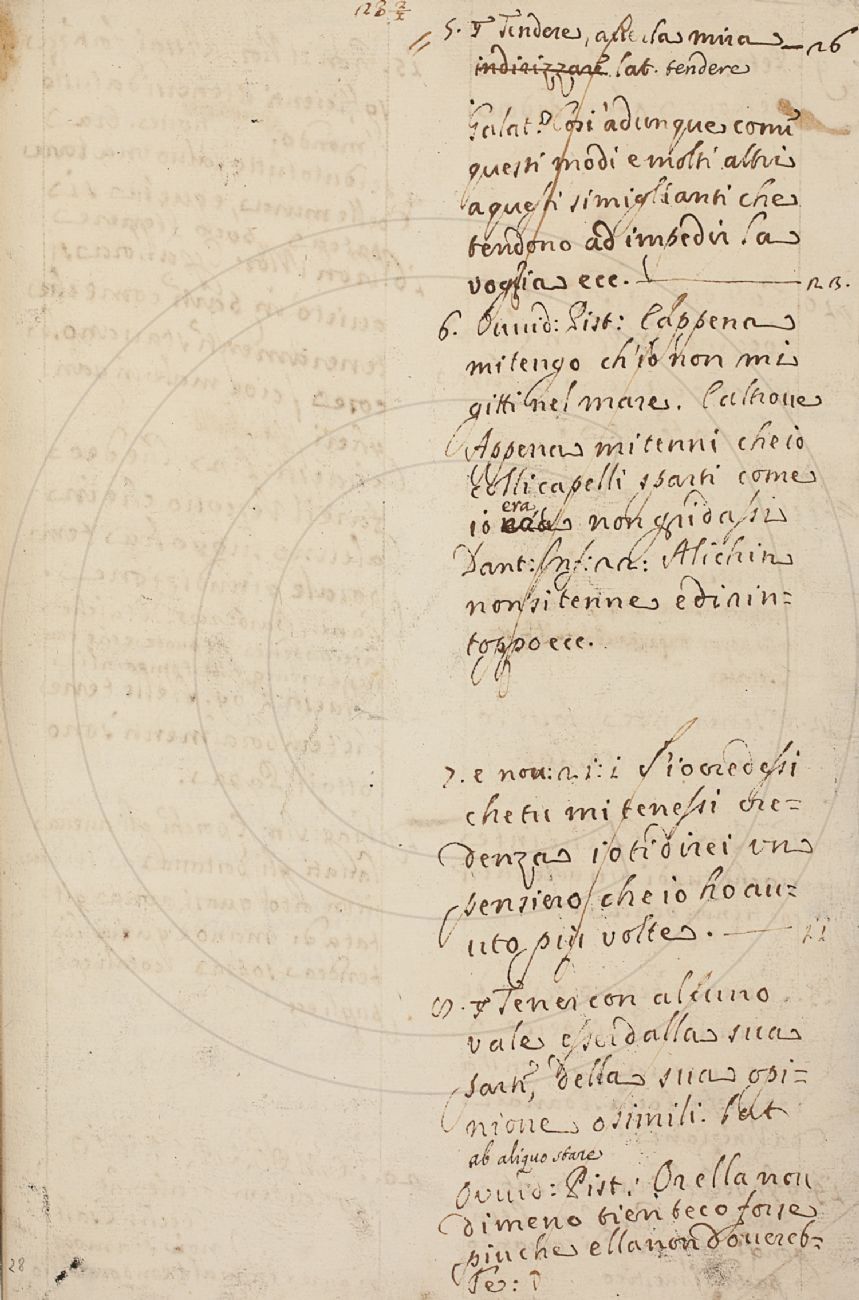 5. Tendere, aver la mira — 26
indirizzare lat. tendere
Galat: Così adunque comū
questi modi e molti altri
a questi simiglianti che
tendono ad impedir la
voglia ecc. — 23.
6. Ouuid: Pist: E appena
mi tengo ch'io non mi
gitti nel mare. E altroue
Appena mi tenni che io
colli capelli sparti come
io era non gridassi
Dant: Inf: 22: Alichin
non si tenne e di rin=
toppo ecc.
7. e nou: 21: S'io credessi
che tu mi tenessi cre=
denza io ti direi un
pensiero che io ho au=
uto più volte. — 11
8. Tener con alcuno
vale esser dalla sua
parte, Della sua opi=
nione o simili. Lat
ab aliquo stare
Ouuid: Pist: Or ella non
di meno tien teco forse
piu che ella non douereb=
28